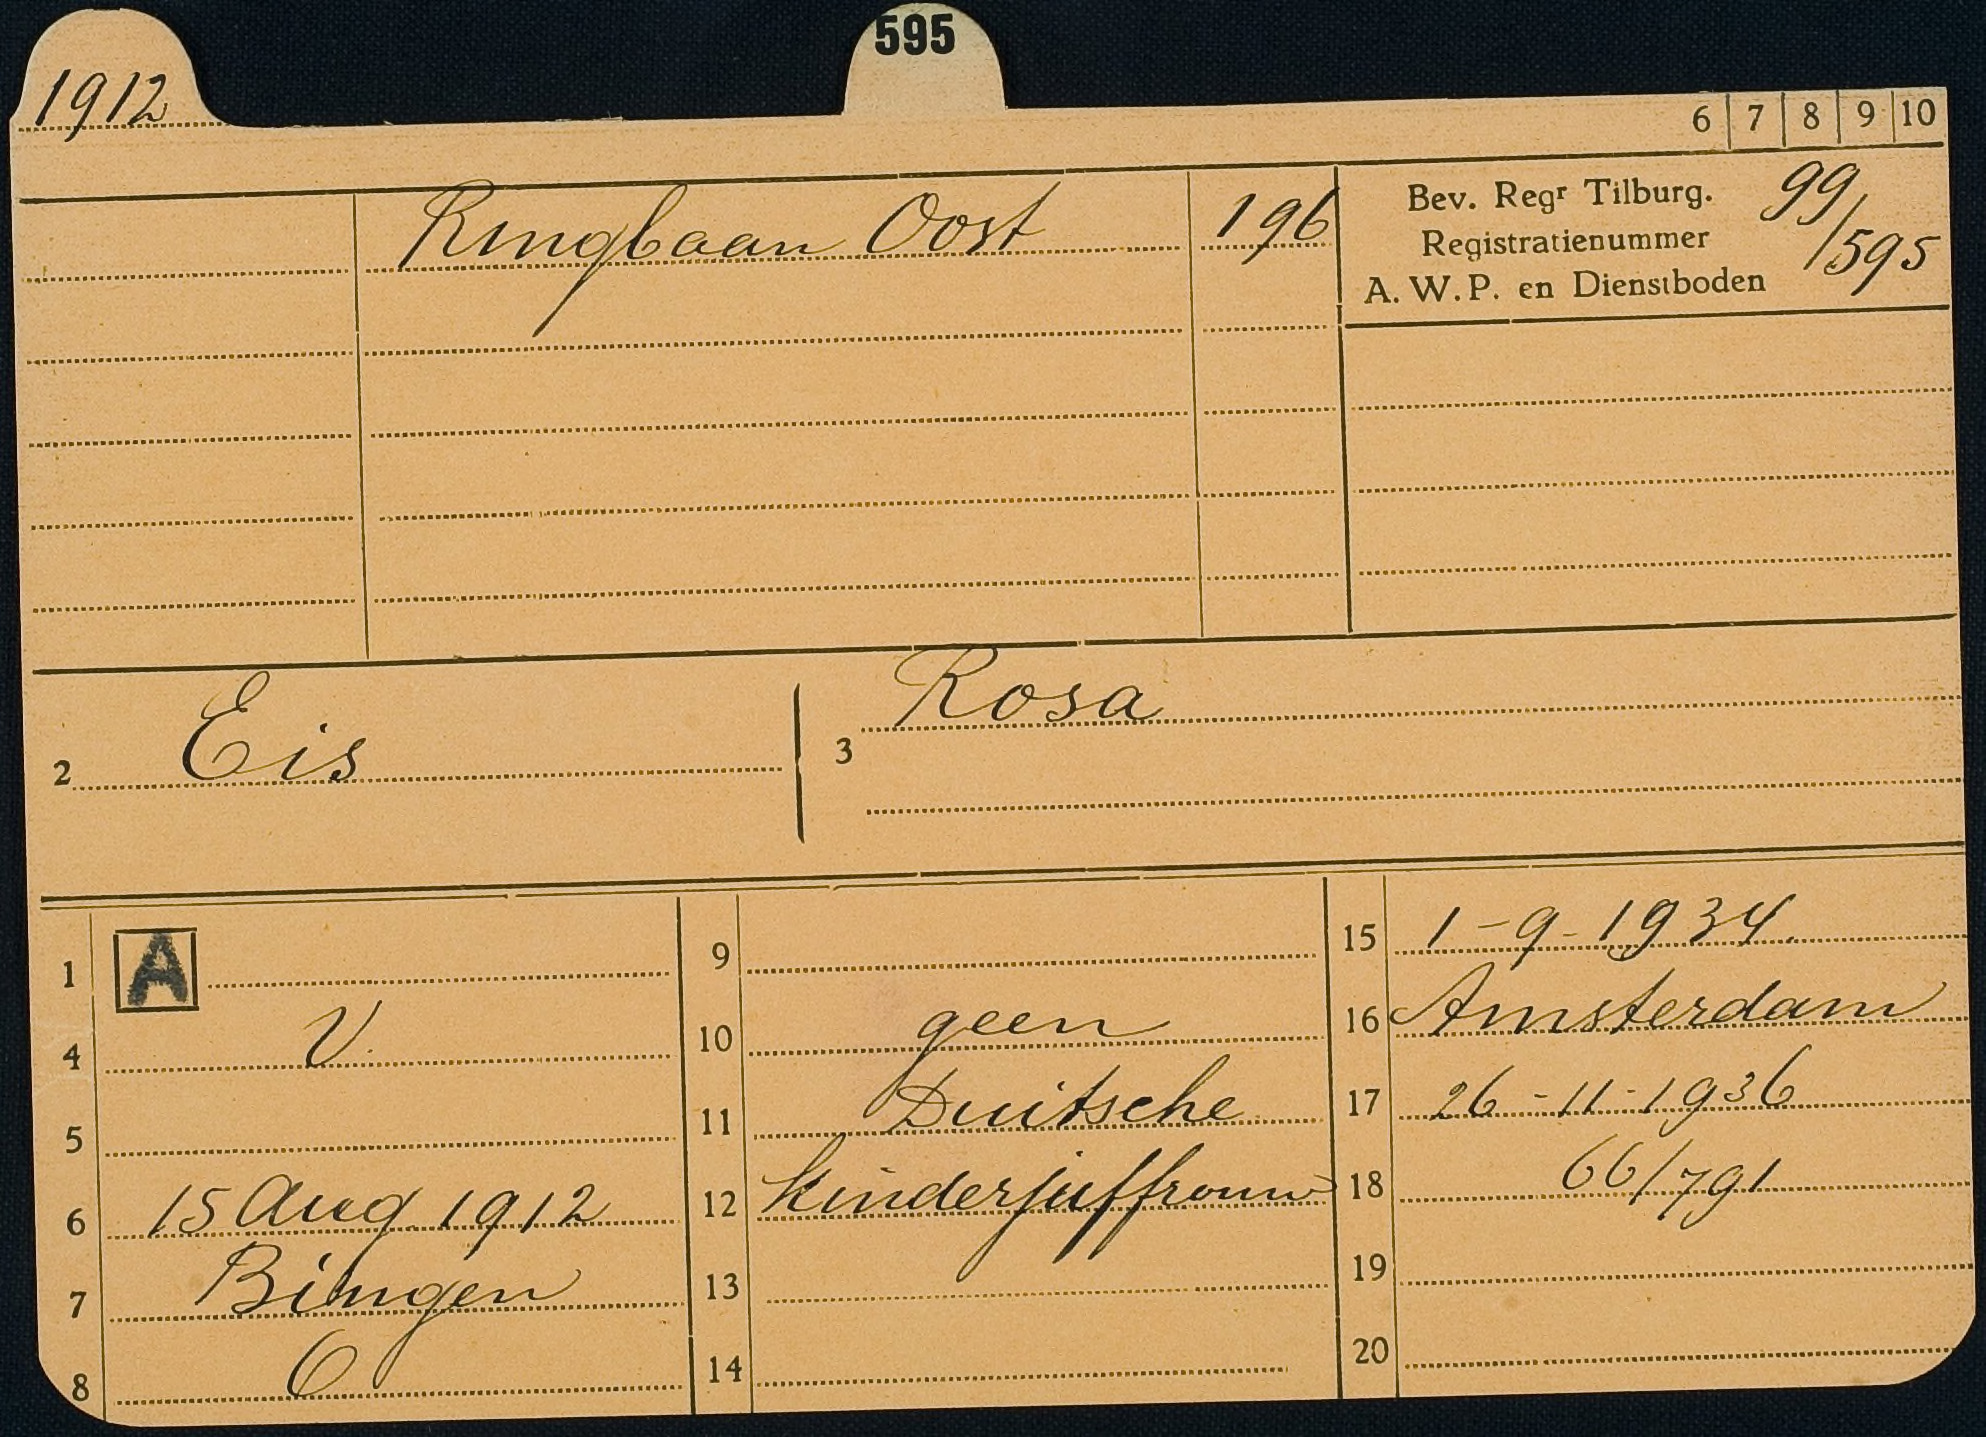 595
1912
6 7 8 9 10
Ringbaan Oost 196
Bev. Regr Tilburg. 99/595
Registratienummer
A. W. P. en Dienstboden
2 Eis
3 Rosa
1 A
4 V.
5
6 15 Aug. 1912
7 Bingen
8 O
9
10 geen
11 Duitsche
12 kinderjuffrouw
13
14
15 1-9-1934.
16 Amsterdam
17 26-11-1936
18 66/791
19
20